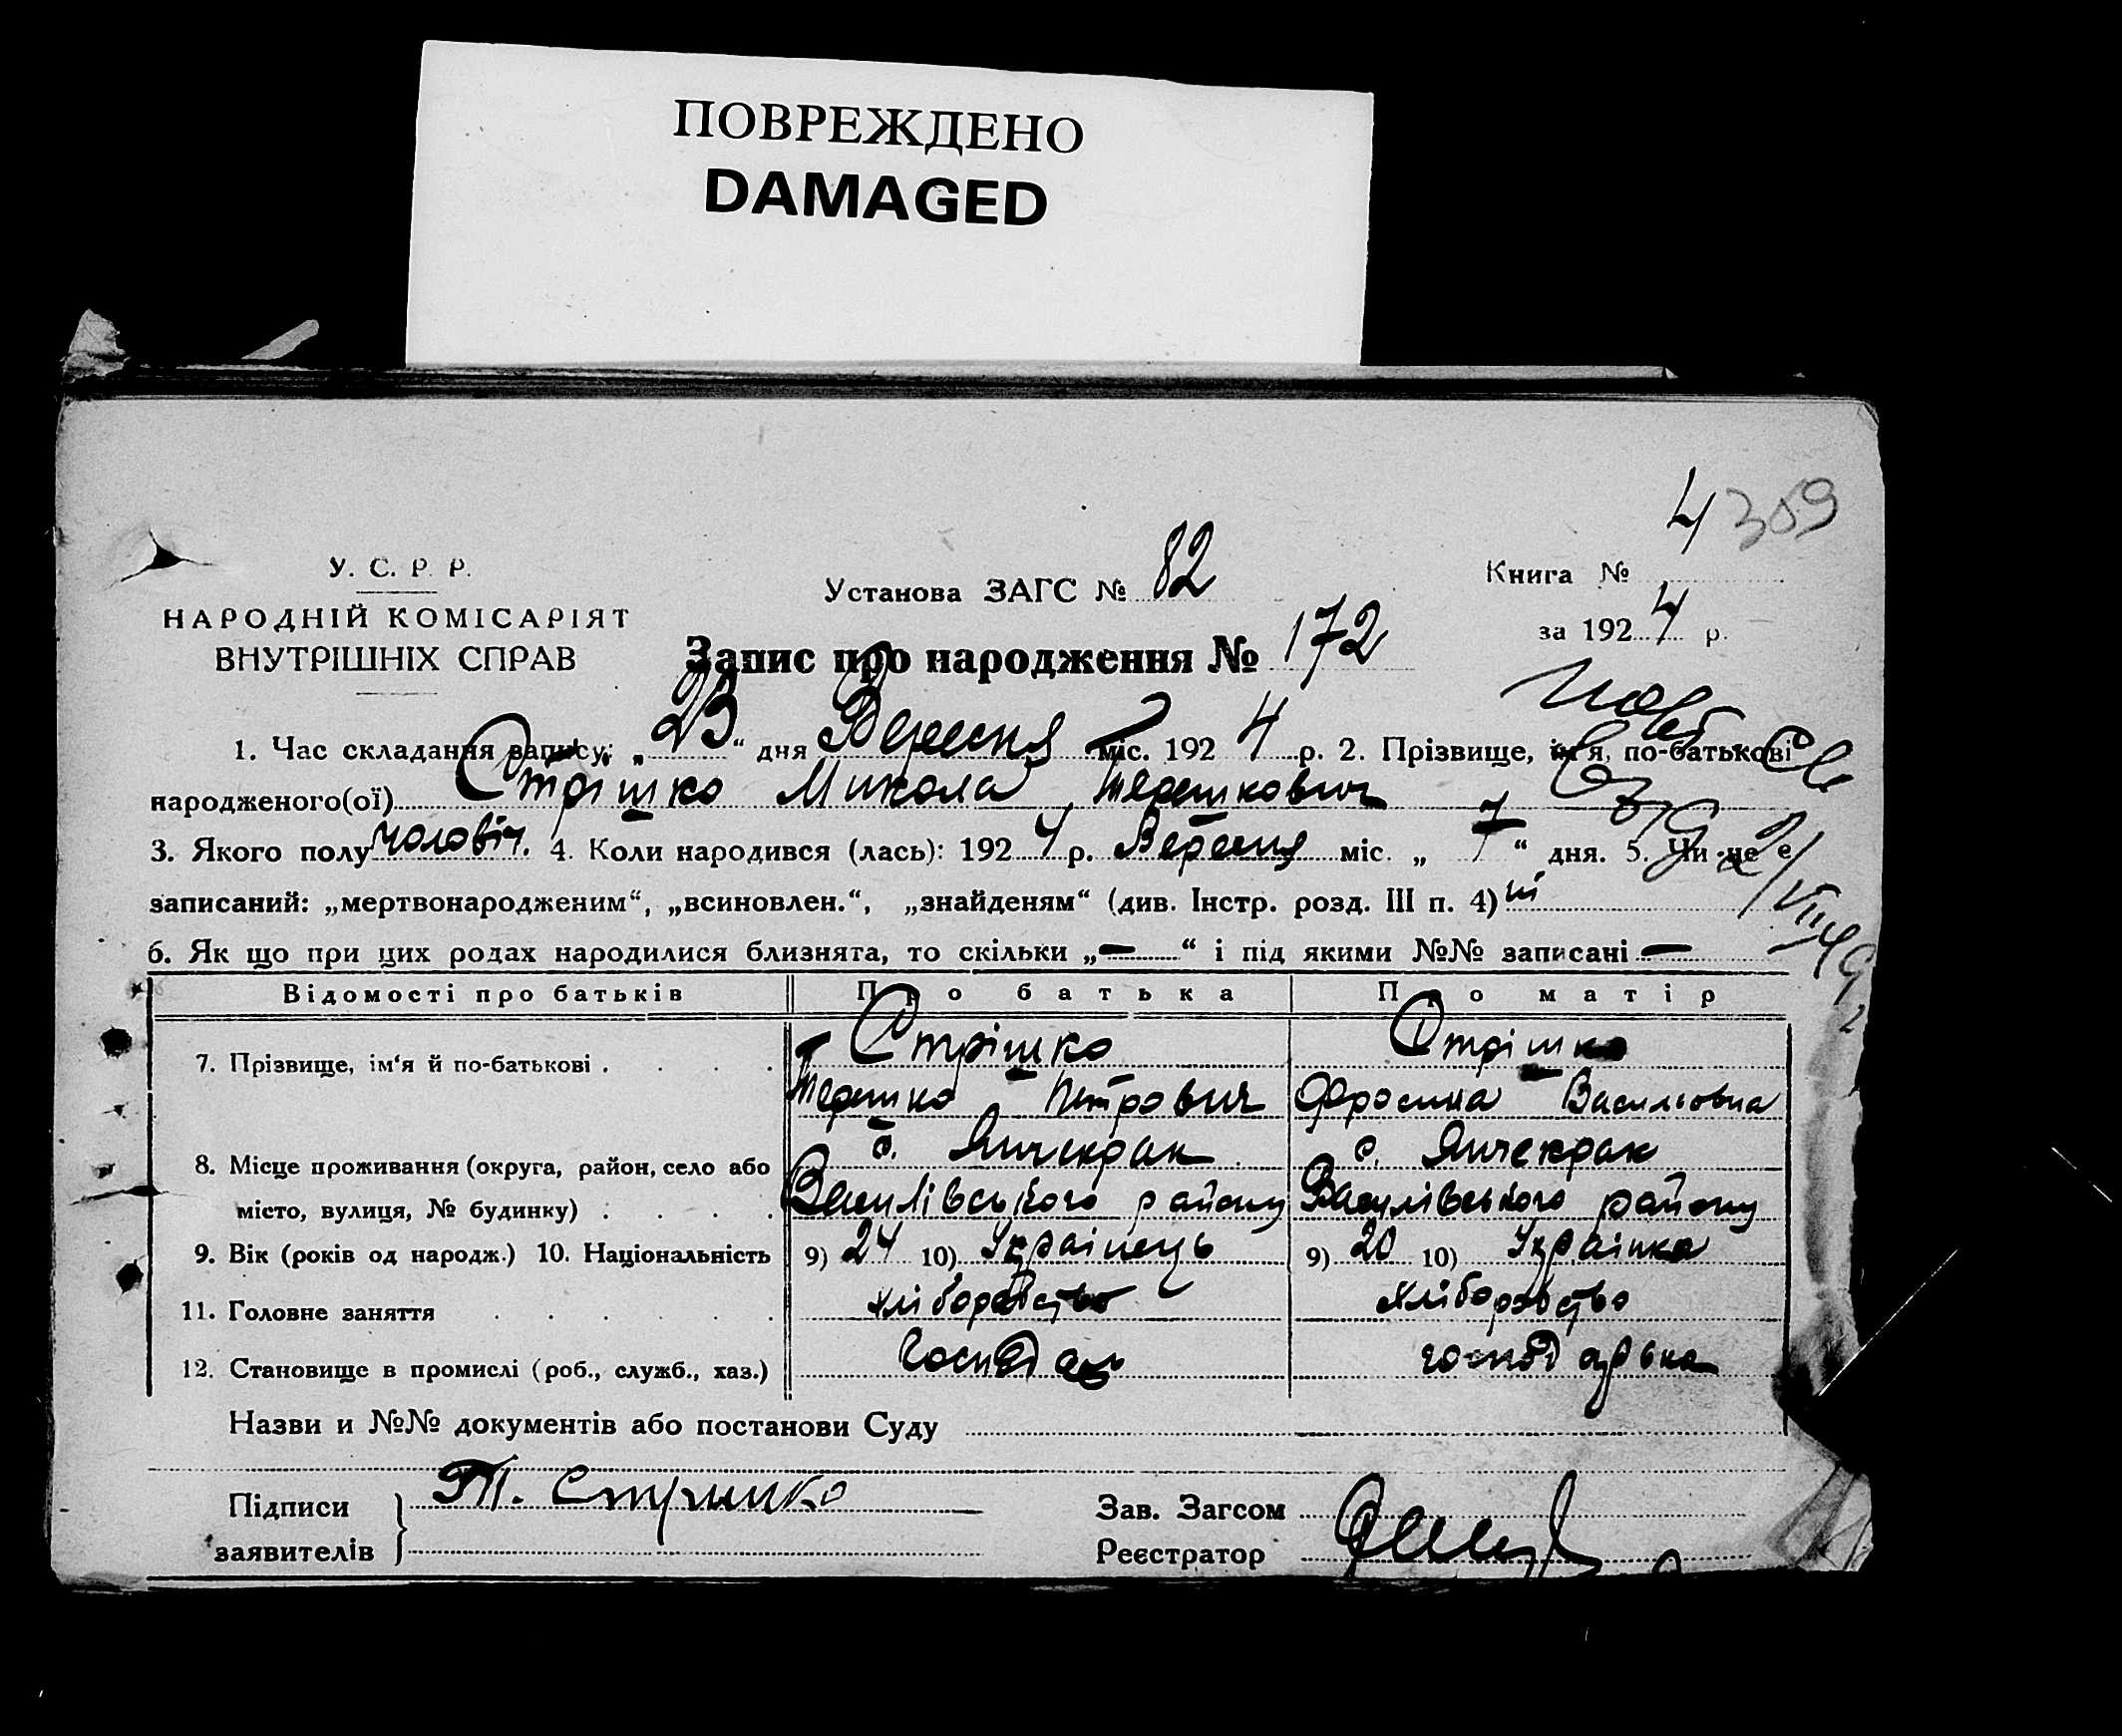 ПОВРЕЖДЕНО
DAMAGED
4 309
У. С. Р. Р.
НАРОДНІЙ КОМІСАРІЯТ
ВНУТРІШНІХ СПРАВ
Установа ЗАГС № 82
Книга №
за 1924 р.
Запис про народження № 172
1. Час складання запису: „23“ дня Вересня міс. 1924 р. 2. Прізвище, ім'я, по-батькові
народженого(ої) Стрішко Микола Терешкович
3. Якого полу чоловіч. 4. Коли народився (лась): 1924 р. Вересня міс. „7“ дня. 5. Чи не є
записаний: „мертвонародженим“, „всиновлен.“, „знайденям“ (див. Інстр. розд. III п. 4) ні
6. Як що при цих родах народилися близнята, то скільки „—“ і під якими №№ записані —
Відомості про батьків Про батька Про матір
7. Прізвище, ім'я й по-батькові . . . . Стрішко Стрішко
Терешко Петрович Фросина Васильовна
8. Місце проживання (округа, район, село або с. Янчекрак с. Янчекрак
місто, вулиця, № будинку) . . . . Василівського району Василівського району
9. Вік (років од народж.) 10. Національність 9) 24 10) Українець 9) 20 10) Українка
11. Головне заняття . . . . . хліборобство хліборобство
12. Становище в промислі (роб., служб., хаз.) господар господарька
Назви и №№ документів або постанови Суду
Підписи
заявителів
Т. Стришко
Зав. Загсом
Реєстратор